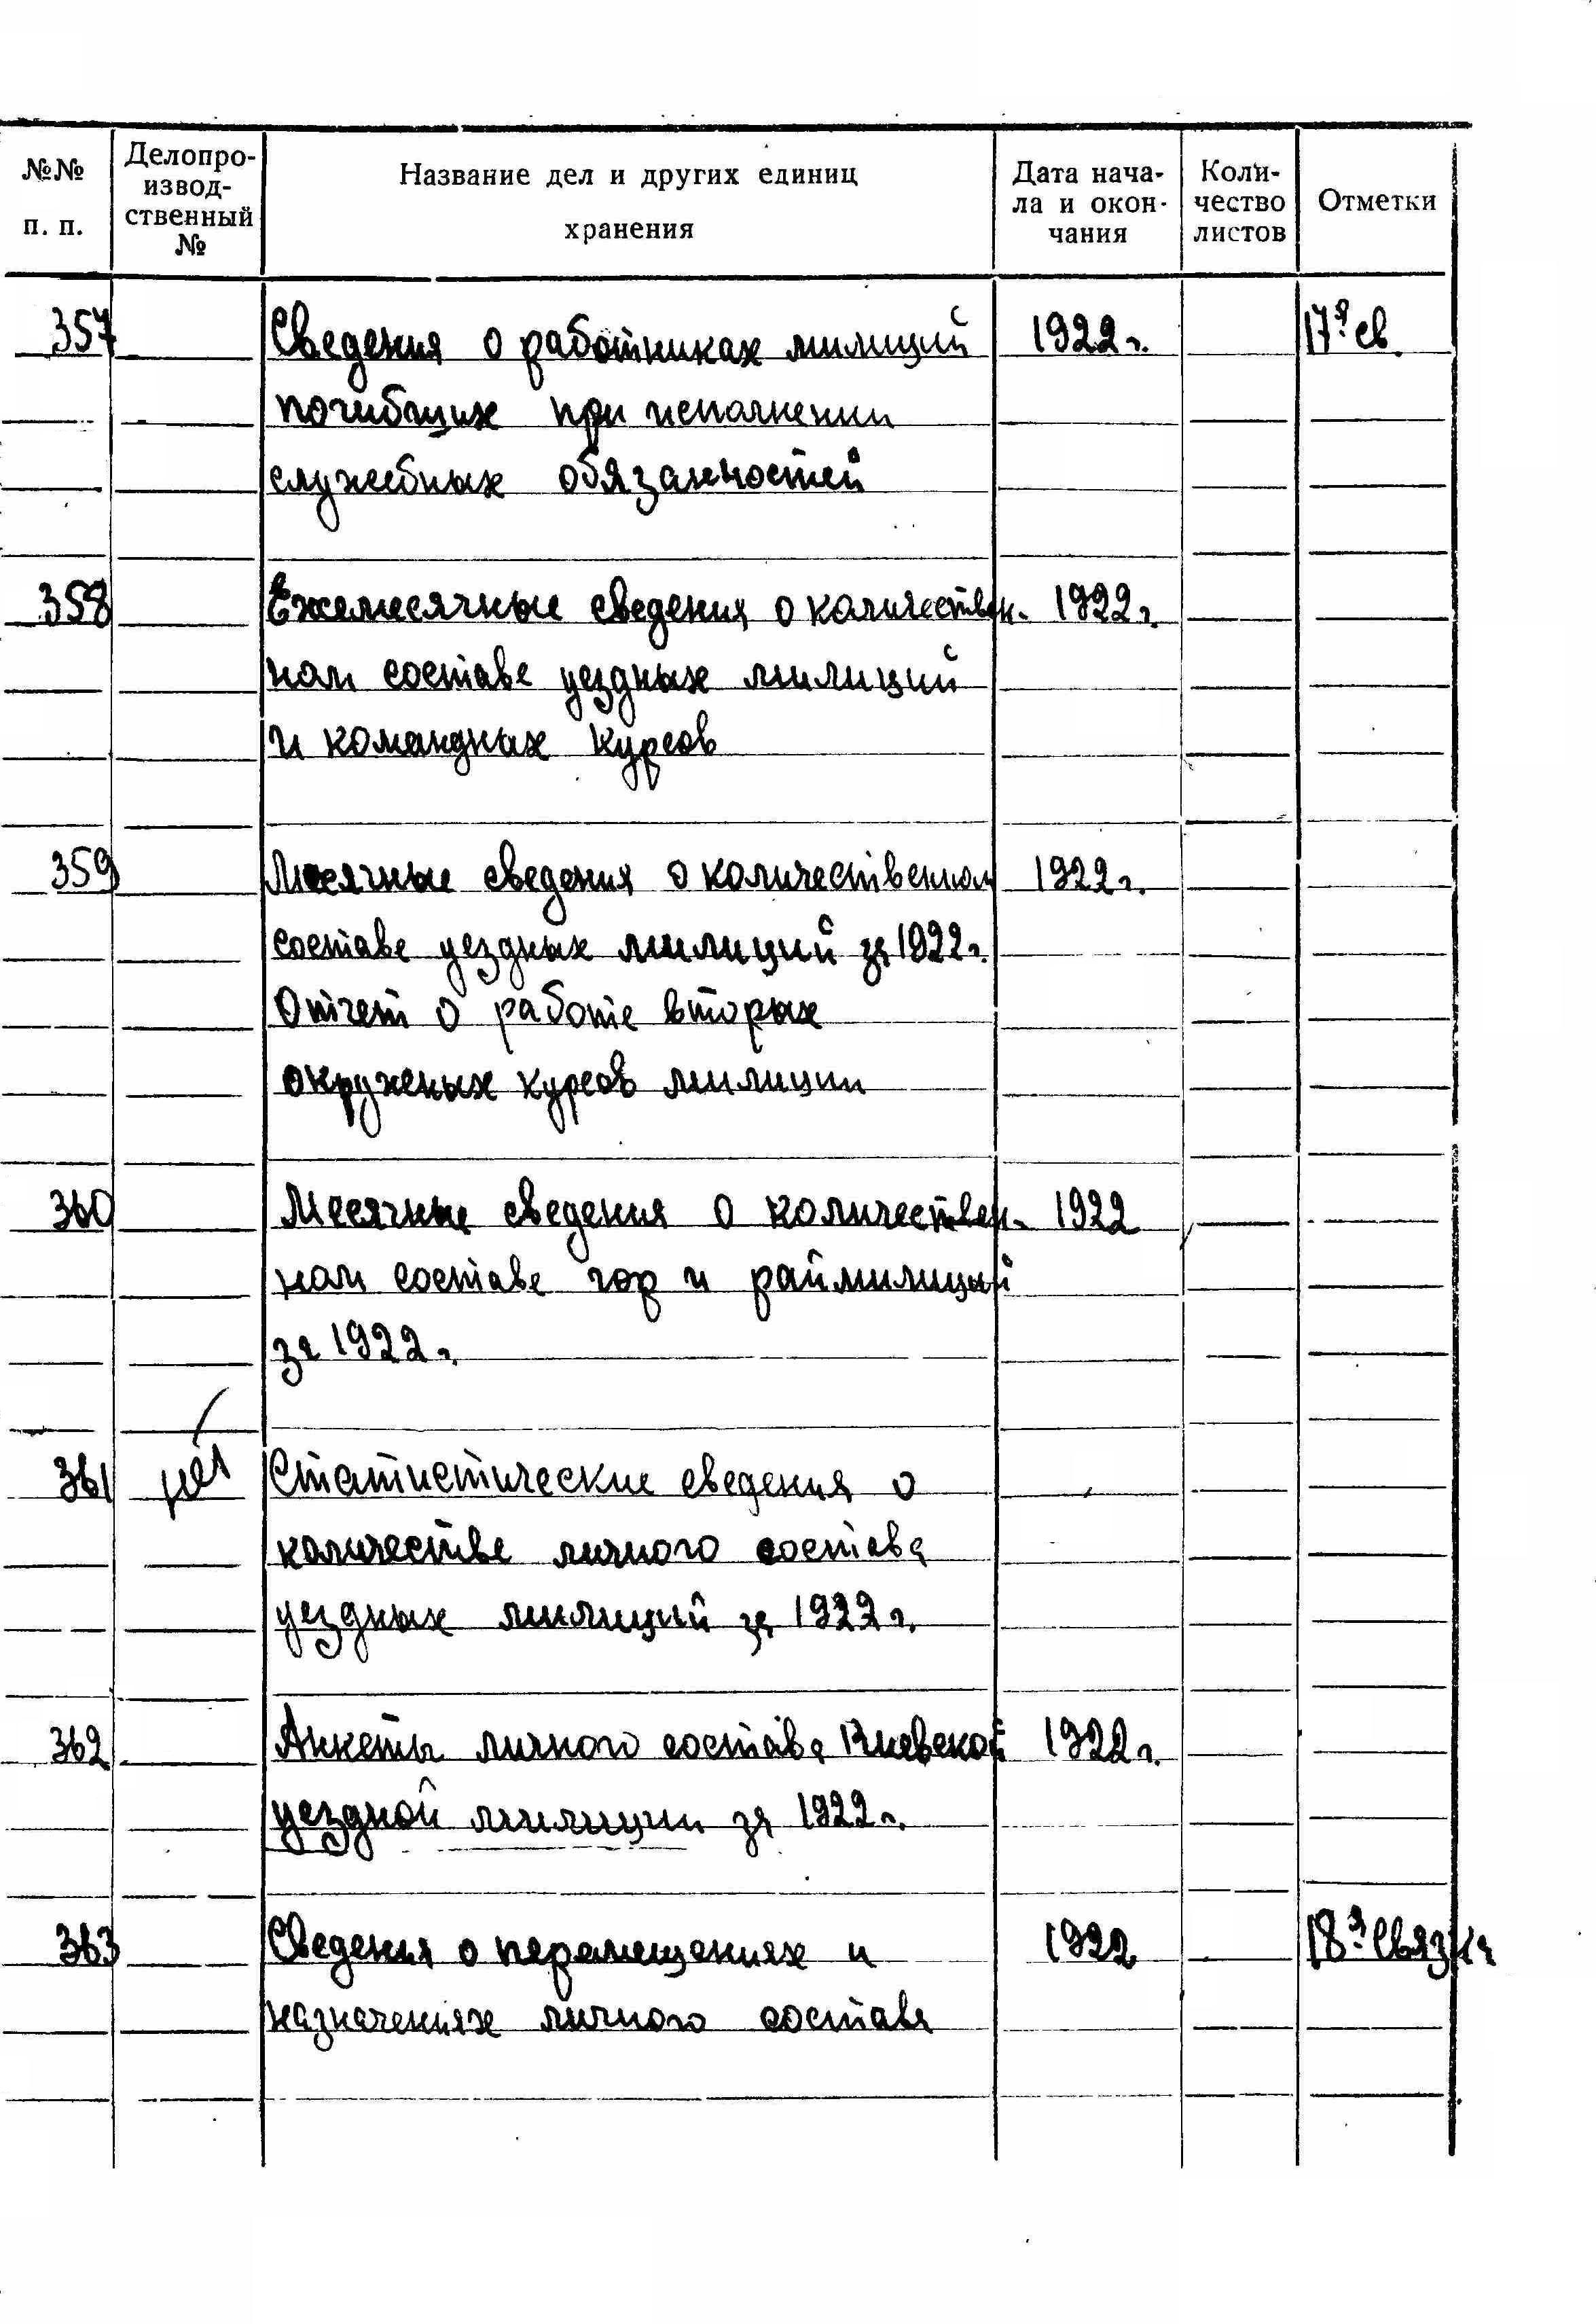 №№ п. п.
Делопро-
извод-
ственный
№
Название дел и других единиц
хранения
Дата нача-
ла и окон-
чания
Коли-
чество
листов
Отметки
357 Сведения о работниках милиций 1922 г. 17я св.
погибших при исполнении
служебных обязанностей
358 Ежемесячные сведения о количествен- 1922 г.
ном составе уездных милиций
и командных курсов
359 Месячные сведения о количественном 1922 г.
составе уездных милиций за 1922 г.
Отчет о работе вторых
окружных курсов милиции
360 Месячные сведения о количествен- 1922
ном составе гор и раймилиций
за 1922 г.
361 нет Статистические сведения о
количестве личного состава
уездных милиций за 1922 г.
362 Анкеты личного состава Киевской 1922 г.
уездной милиции за 1922 г.
363 Сведения о перемещениях и 1922 18я связка
назначениях личного состава